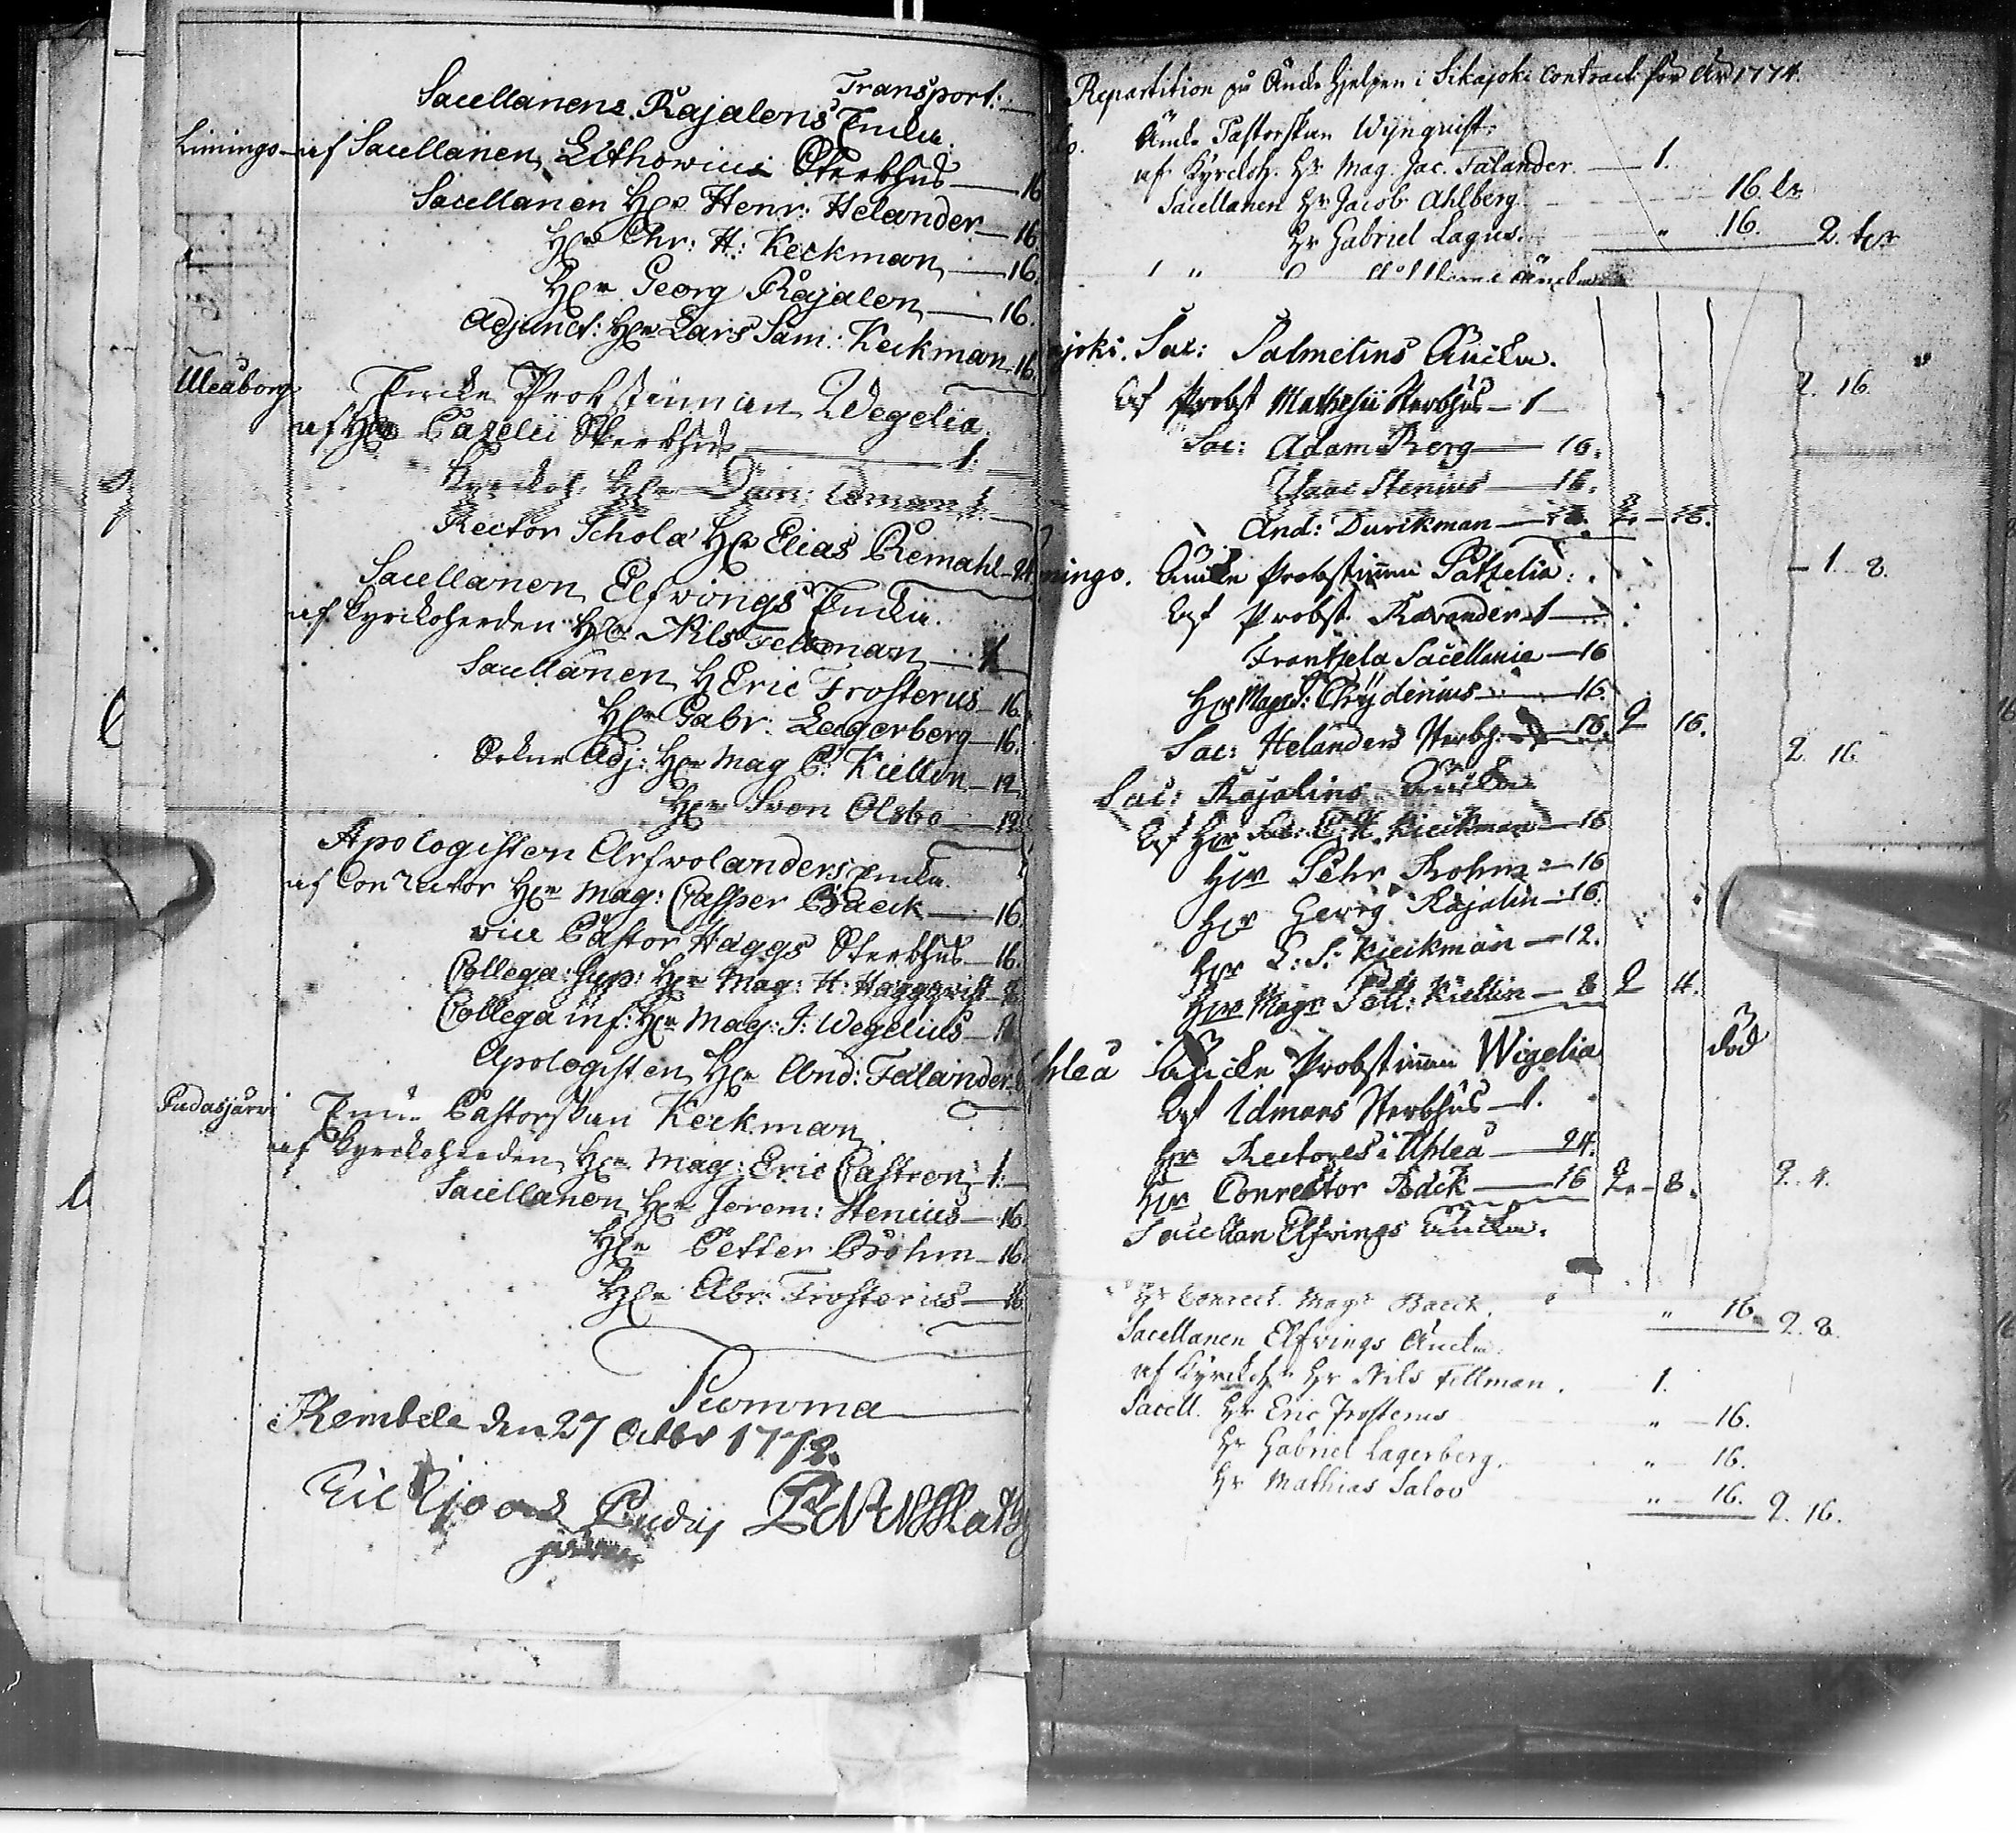 Transport:
Sacellanens Rajalens Encka.
Limingo af Sacellanen Lithowii Sterbhus — 16
Sacellanen Hr Henr: Helander — 16.
Hr Chr: H: Keckman — 16.
Hr Georg Rajalen — 16.
Adjunct: Hr Lars Sam: Keckman 16.
Uleåborg Encke Probstinnan Wegelia.
af Hr Caxelii Sterbhus — 1.
Kyrckoh: Hr Dan: Idman 1.
Rector Scholæ Hr Elias Remahl — 24
Sacellanen Elfvings Encka.
af Kyrckoherden Hr Nils Fellman — 1
Sacellanen H Eric Frosterus — 16.
Hr Gabr: Lagerberg — 16.
Adj: Hr Mag P: Kiellen — 12
Hr Sven Olsbo — 12.
Apologisten Arfvolanders Encka.
af Conrector Hr Mag: Casper Baeck — 16.
vice Pastor Häggs Sterbhus — 16.
Collega Sup: Hr Mag: H: Häggqvist — 8
Collega inf: Hr Mag: J: Wegelius —
Apologisten Hr And: Falander
Pudasjärvi Encke Pastorskan Keckman
af Kyrckoherden Hr Mag: Eric Castren — 1.
Sacellanen Hr Jerem: Stenius — 16.
Hr Petter Böhm — 16.
Hr Abr: Frosterus — 16.
Summa
Kembele den 27 Octbr 1773.
Repartition på Äncke hjelpen i Sikajoki Contract för År 1774.
Äncke Pastorskan Wynquist.
af Kyrckoh. Hr Mag. Jac. Falander. — 1.
Sacellanen Hr Jacob Ahlberg — 16. ör
Hr Gabriel Lagus. — " 16. 2. dlr
joki. Sac: Salmelins Änckia. 2. 16.
Af Probst Mathesii Sterbhus — 1 —
Sac: Adam Berg — 16.
Isaac Stenius — 16.
And: Durikman — 16. 2. — 16.
mingo. Äncke Probstinnan Patzelia. — 1. 8.
Af Probst Ravander 1 —
Frantzela Sacellanie — 16
Hr Mag: Chydenius — 16.
Sac: Helanders Sterbh. — 16. 2 16. 2. 16.
Sac: Rajalins Änckia
Af Hr Sac: C: H. Kieckman — 16
Hr Pehr Bohm — 16
Hr Georg Rajalin — 16.
Hr L: S: Kieckman — 12.
Hr Magr Pett: Kiellin — 8 2 4.
Uhleå Äncke Probstinnan Wigelia död
Af Idmans Sterbhus — 1.
Hr Rectores i Uhleå — 24.
Hr Conrector Bäck — 16 2. — 8. 2. 4.
Sacellan Elfvings Änckia.
Hr Conrect. Magr Baeck. " 16. 2. 8.
Sacellanen Elfvings Äncka.
af Kyrckoh. Hr Nils Fellman. 1.
Sacell. Hr Eric Frosterus " — 16.
Hr Gabriel Lagerberg. " — 16.
Hr Mathias Salov " — 16. 2. 16.